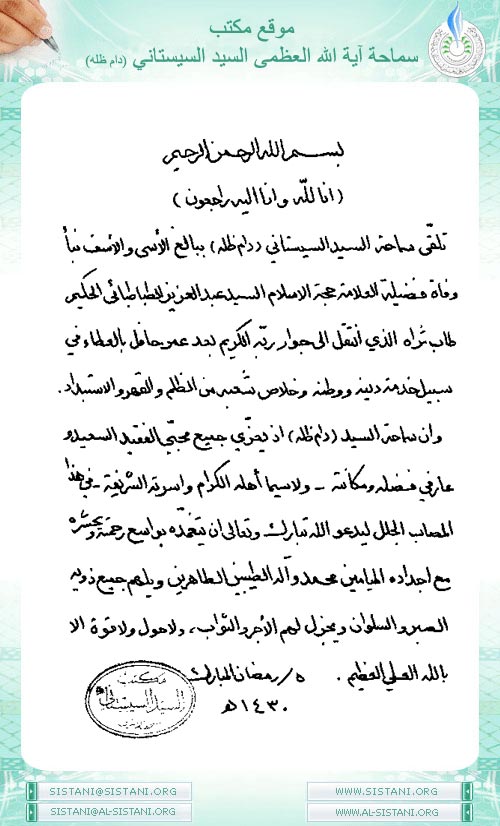 موقع مكتب
سماحة آية الله العظمى السيد السيستاني (دام ظله)
بسم الله الرحمن الرحيم
(انا لله وانا اليه راجعون)
تلقّى سماحة السيد السيستاني (دام ظله) ببالغ الأسى والأسف نبأ
وفاة فضيلة العلامة حجة الاسلام السيد عبدالعزيز الطباطبائي الحكيم
طاب ثراه الذي انتقل الى جوار ربّه الكريم بعد عمر حافل بالعطاء في
سبيل خدمة دينه ووطنه وخلاص شعبه من الظلم والقهر والاستبداد.
وان سماحة السيد (دام ظله) اذ يعزّي جميع محبّي الفقيد السعيد و
عارفي فضله ومكانته - ولاسيما أهله الكرام واسرته الشريفة - في هذا
المصاب الجلل ليدعو الله تبارك وتعالى ان يتغمّده بواسع رحمته ويحشره
مع اجداده الميامين محمد وآله الطيبين الطاهرين ويلهم جميع ذويه
الصبر والسلوان ويجزل لهم الأجر والثواب، ولاحول ولاقوة الا
بالله العلي العظيم. ٥/رمضان المبارك
١٤٣٠هـ
مكتب
السيد السيستاني
SISTANI@SISTANI.ORG WWW.SISTANI.ORG
SISTANI@AL-SISTANI.ORG WWW.AL-SISTANI.ORG